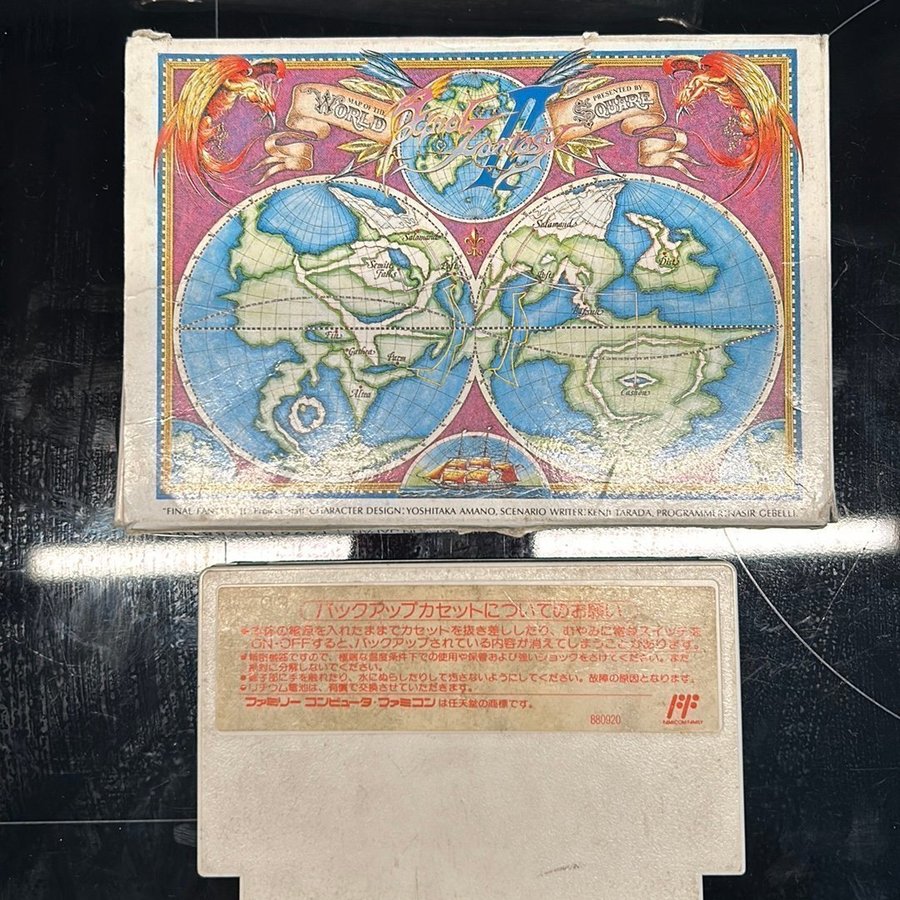 MAP OF THE
WORLD
Final Fantasy II
PRESENTED BY
SQUARE
Salamand
Semitt
Falls
Salamand
Dist
Fin
Gatrea
Parm
Altea
Cashon
"FINAL FANTASY II" Project Staff CHARACTER DESIGN: YOSHITAKA AMANO, SCENARIO WRITER: KENJI TARADA, PROGRAMMER: NASIR GEBELLI.
バックアップカセットについてのお願い
●本体の電源を入れたままでカセットを抜き差ししたり、むやみに電源スイッチを
ON-OFFすると、バックアップされている内容が消えてしまうことがあります。
●精密機器ですので、極端な温度条件下での使用や保管および強いショックをさけてください。また
絶対に分解しないでください。
●端子部に手を触れたり、水にぬらしたりして汚さないようにしてください。故障の原因となります。
●リチウム電池は、有償で交換させていただきます。
ファミリーコンピュータ・ファミコンは任天堂の商標です。
880920
FAMICOM FAMILY